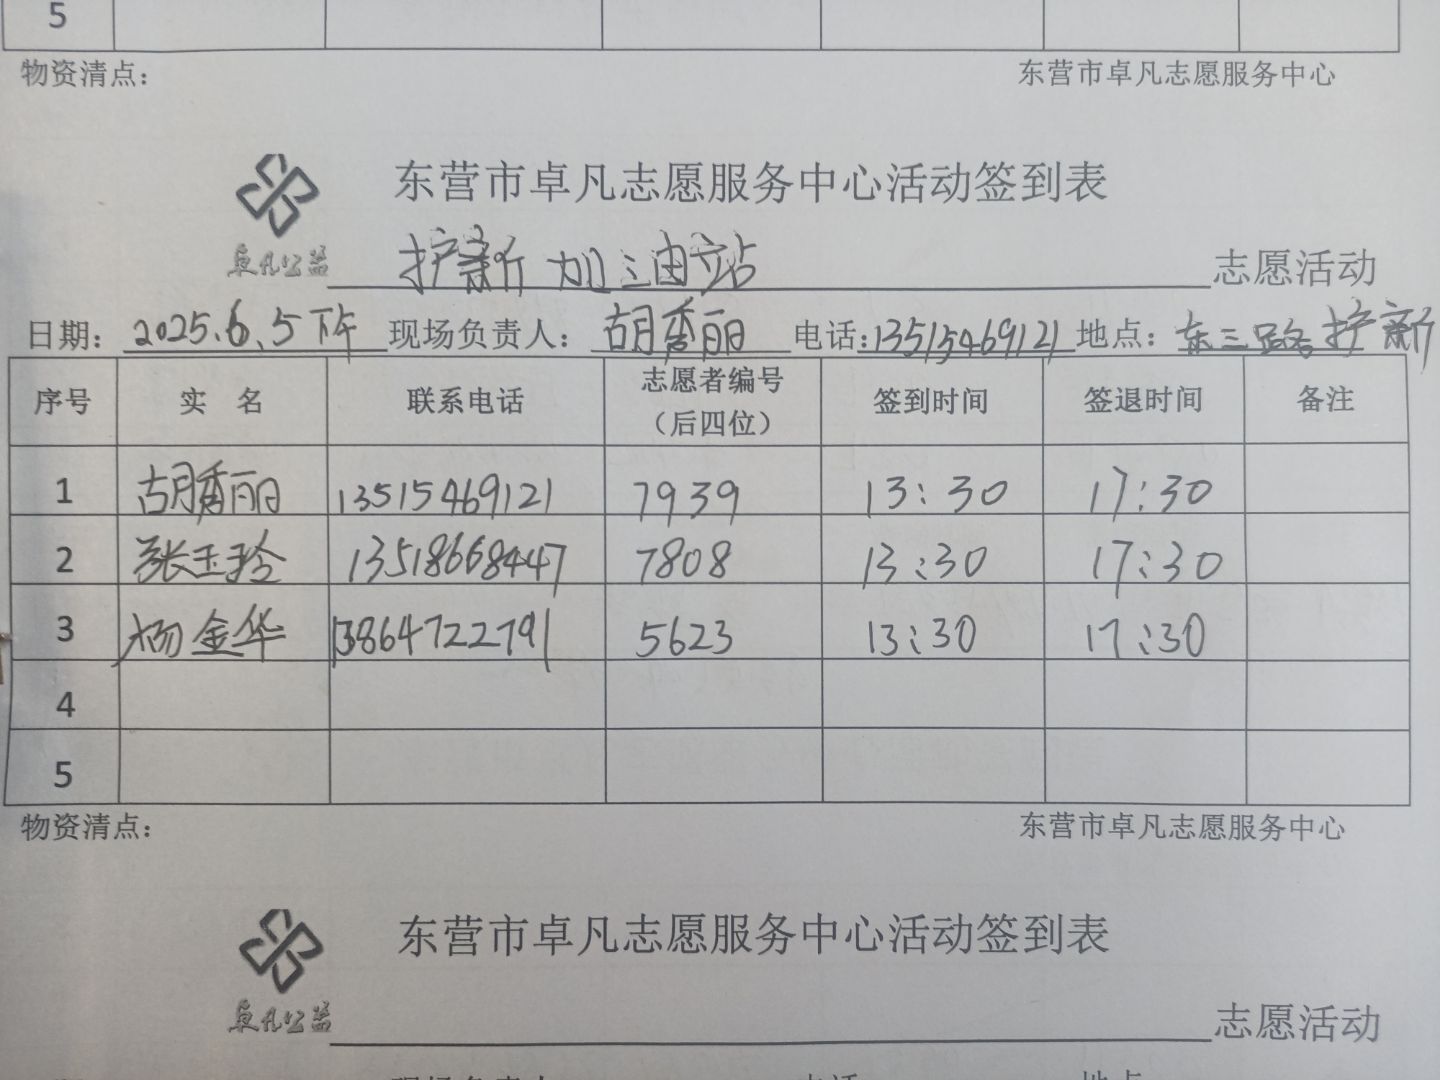 5
物资清点： 东营市卓凡志愿服务中心
东营市卓凡志愿服务中心活动签到表
卓凡公益 护新加油站 志愿活动
日期：2025.6.5下午 现场负责人：胡秀丽 电话：13515469121 地点：东三路护新
序号 实 名 联系电话 志愿者编号（后四位） 签到时间 签退时间 备注
1 胡秀丽 13515469121 7939 13:30 17:30
2 张玉玲 13518668447 7808 13:30 17:30
3 杨金华 13864722791 5623 13:30 17:30
4
5
物资清点： 东营市卓凡志愿服务中心
东营市卓凡志愿服务中心活动签到表
卓凡公益 志愿活动